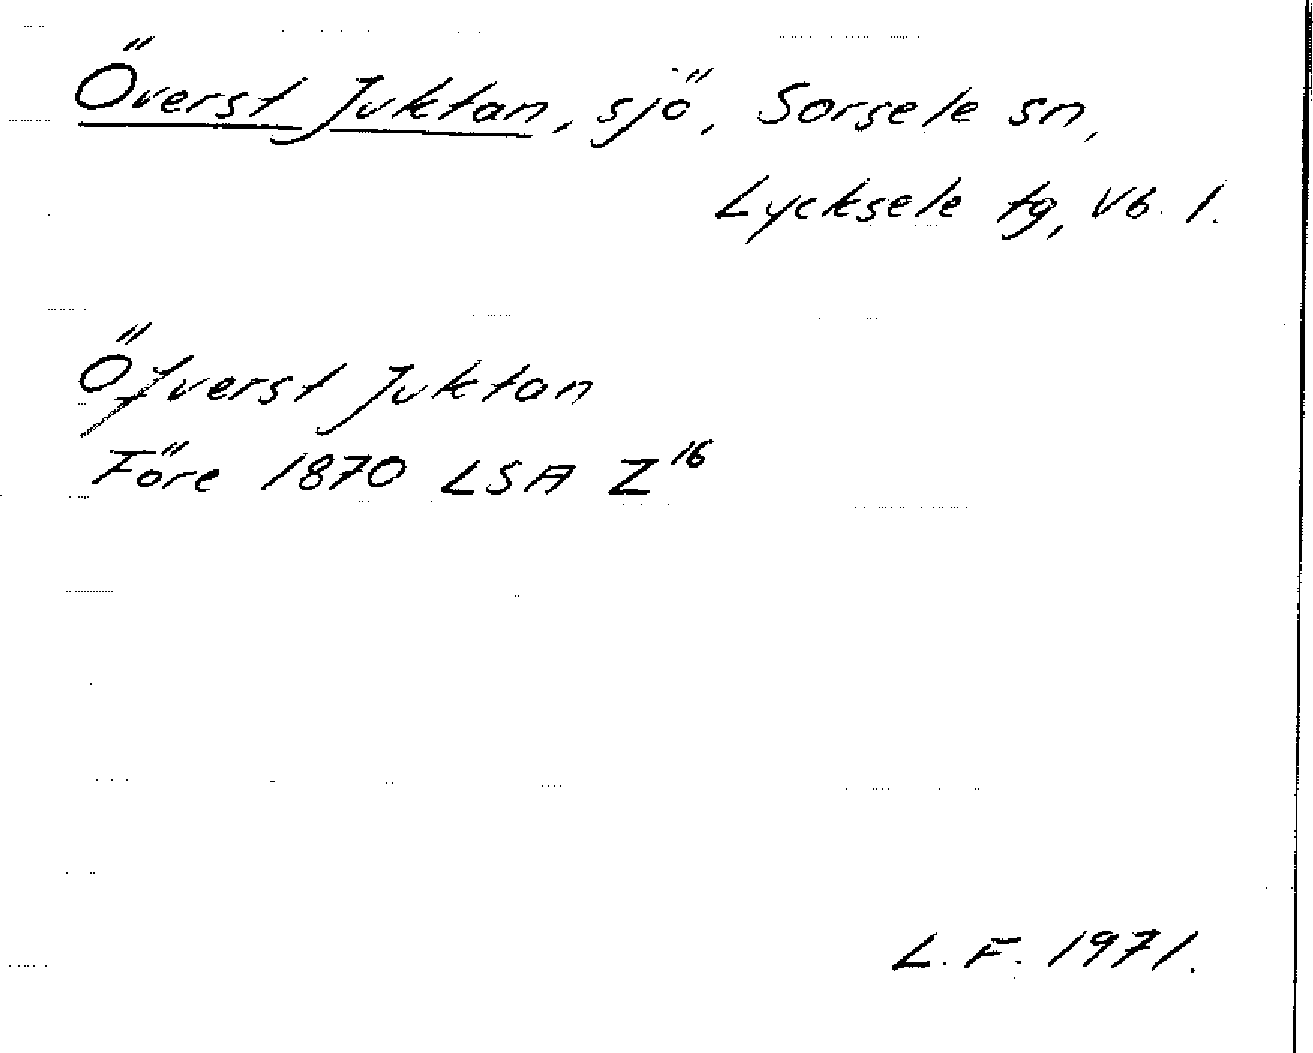 Överst Juktan, sjö, Sorsele sn,
Lycksele tg, Vb. l.
Öfverst Juktan
Före 1870 LSA Z16
L. F. 1971.